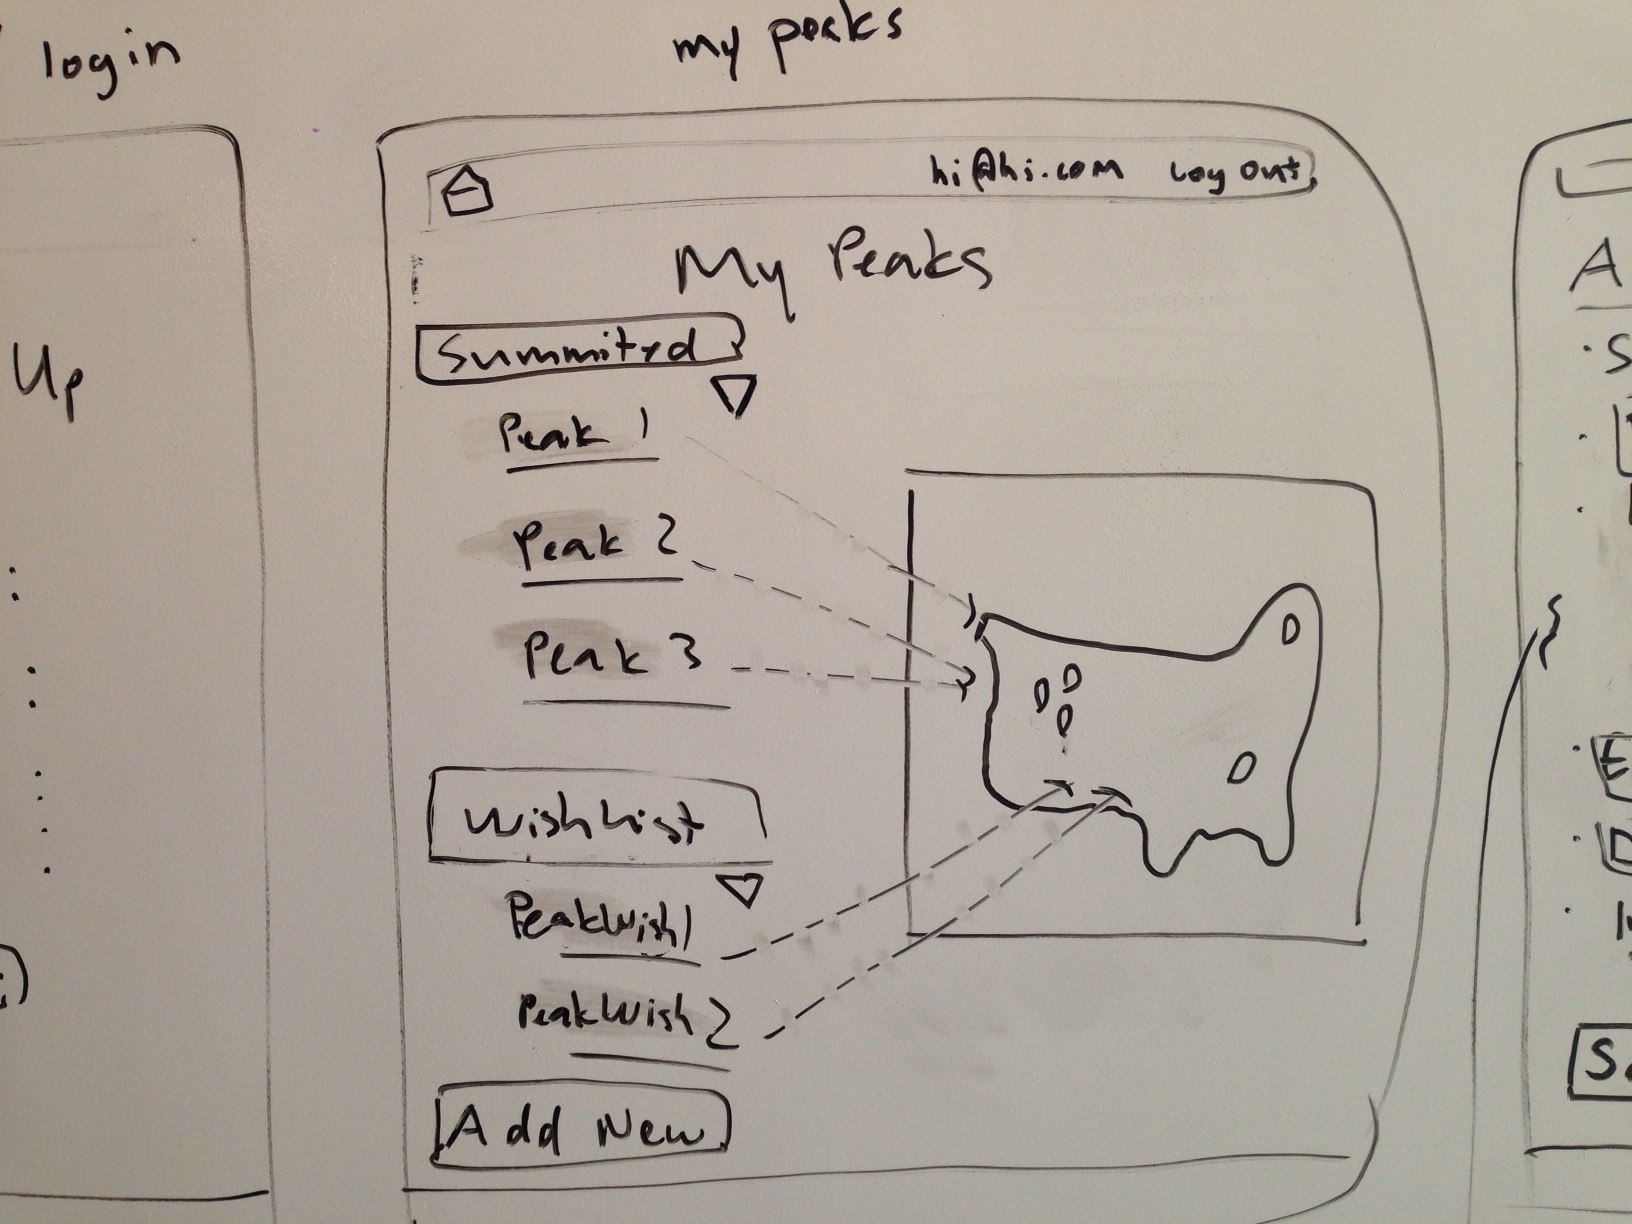 login
my peaks
Up
hi@hi.com Log Out
My Peaks
Summited
Peak 1
Peak 2
Peak 3
Wishlist
PeakWish1
PeakWish 2
Add New
A
S
E
D